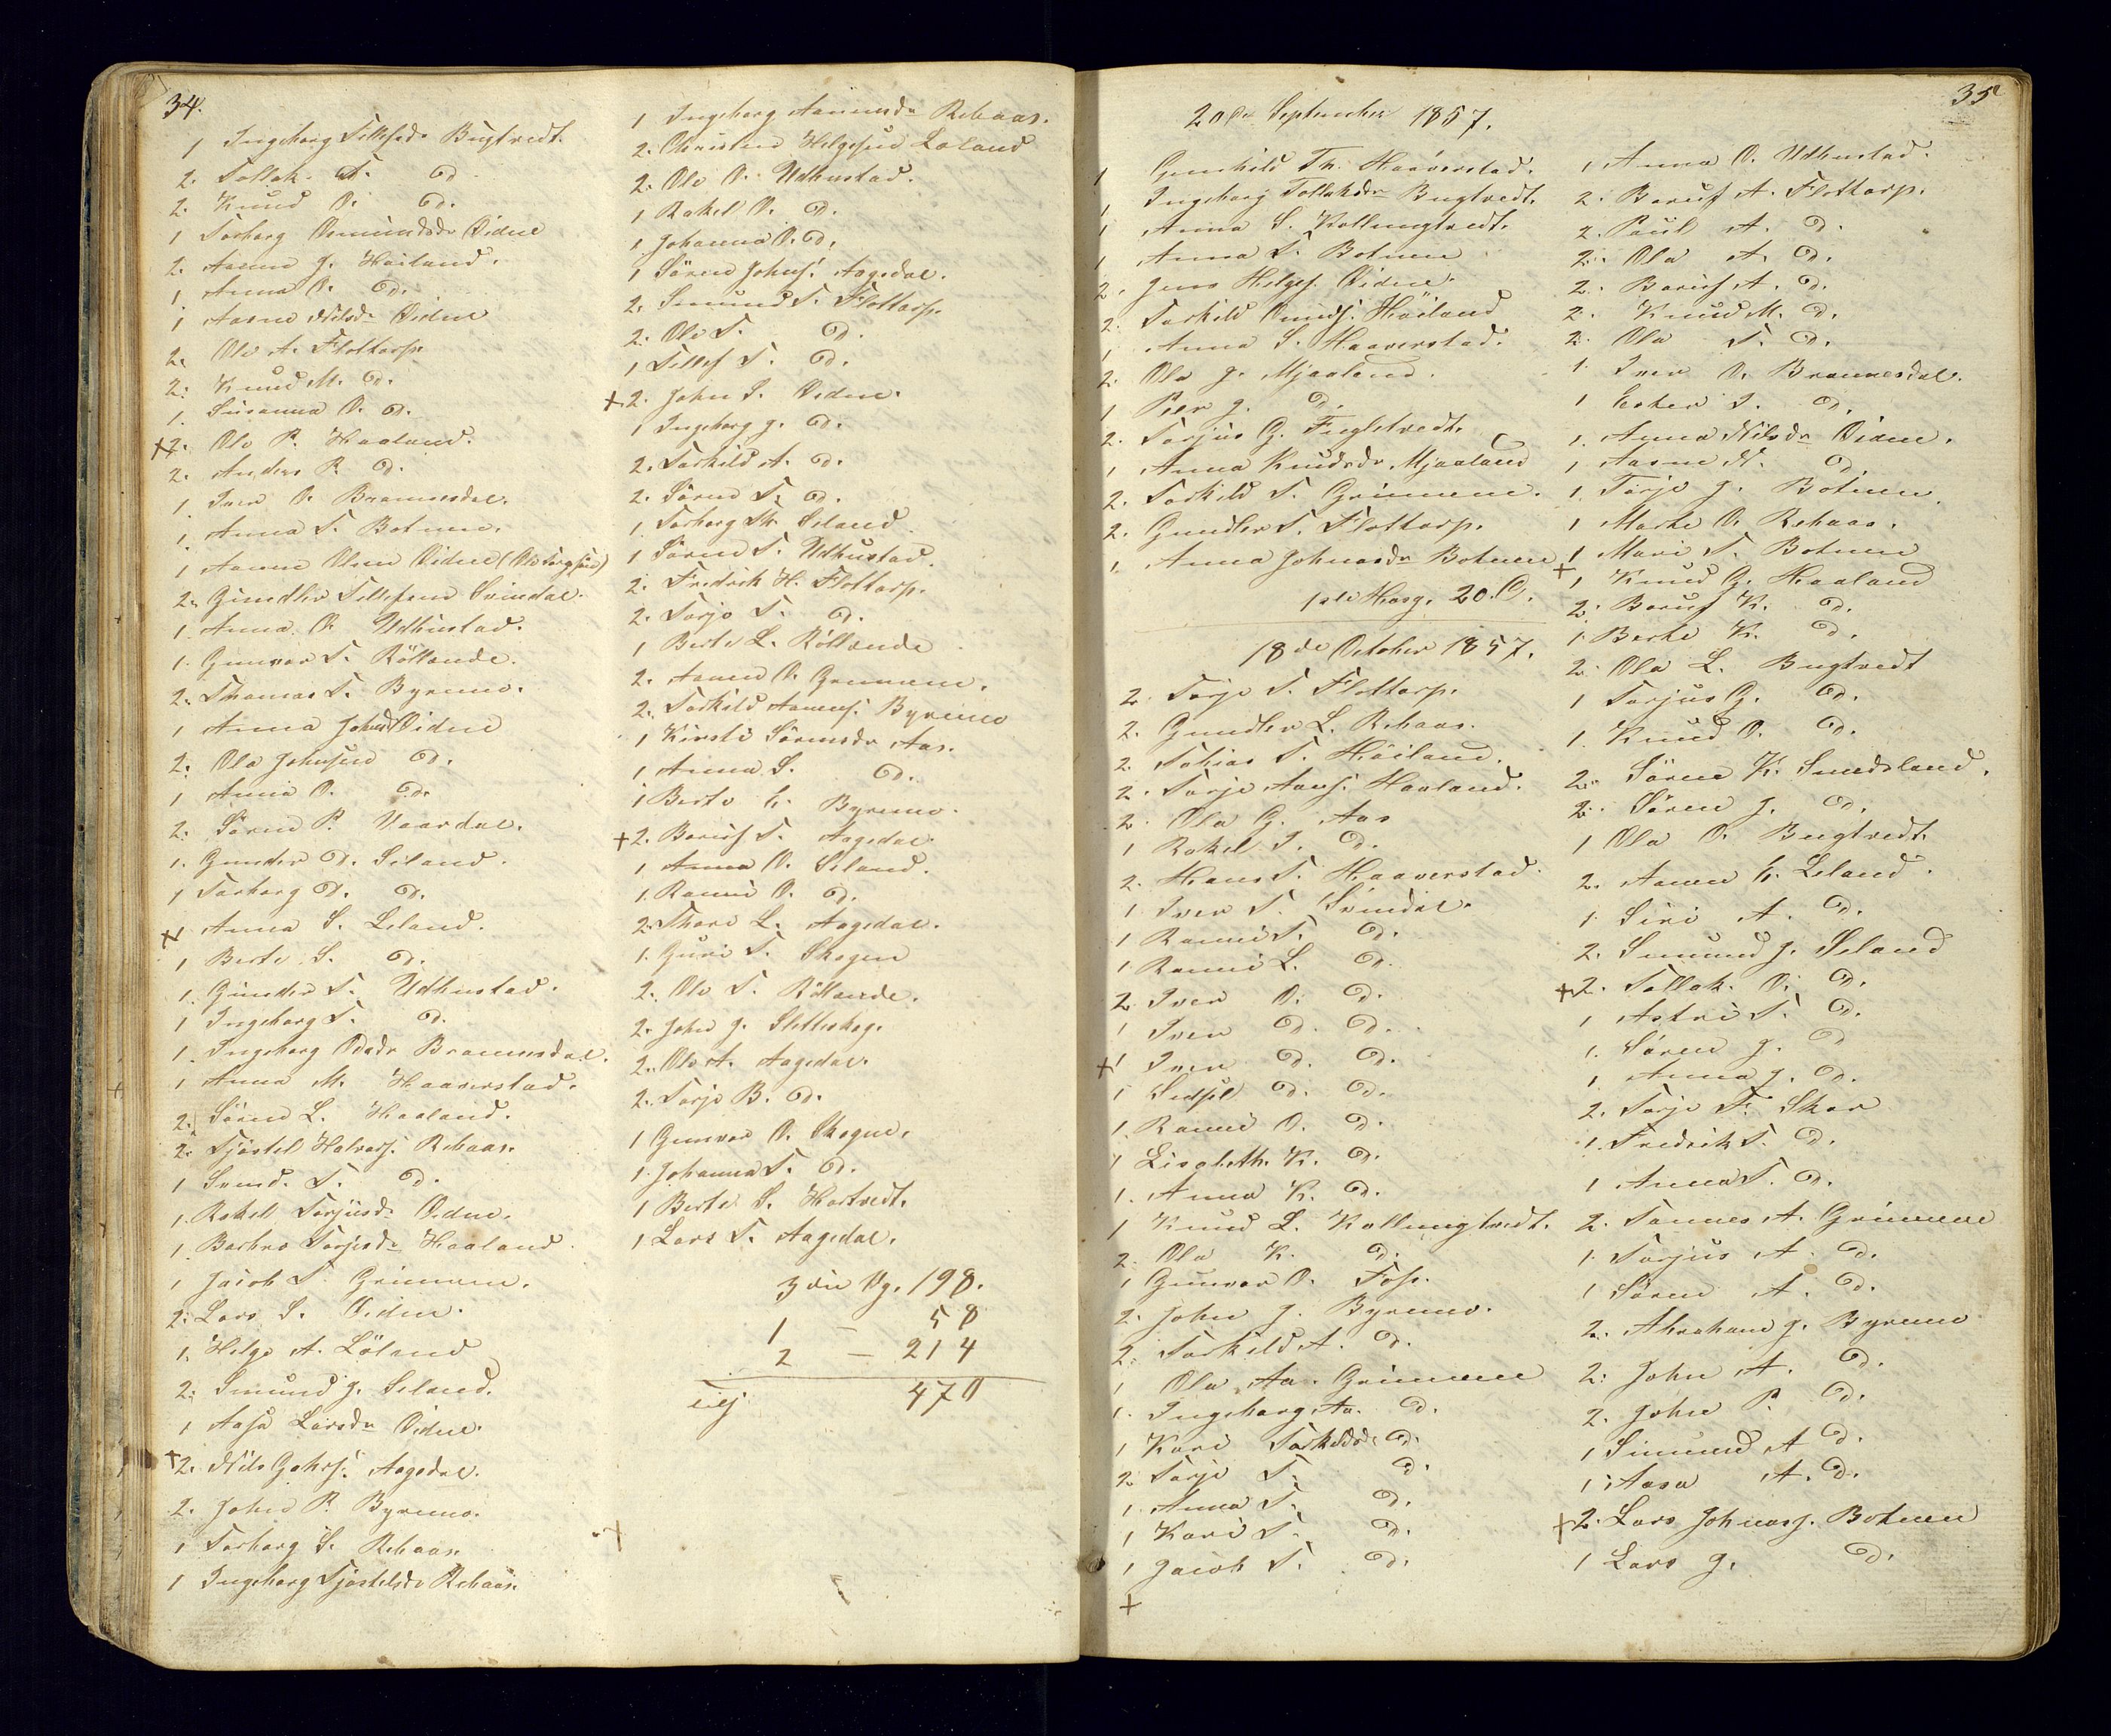 34.
1 Ingeborg Tellefsdr Bugtvedt.
2. Tollak T. Do
2. Knud O. Do.
1 Torborg Omundsdr Vidne
2. Aanen J. Høiland.
1 Anna O. Do.
1 Aasne Nilsdr Vidne
2. Ole A. Flottorp.
2. Knud M. Do.
1. Susanna O. Do.
+2. Ole P. Haaland.
2. Anders P. Do.
1 Iver O. Brannesdal.
1. Anna T. Botnen.
1 Aanen Olsen Vidne
2. Gundler Tellefsen Svindal.
1. Anna O. Udhustad.
1. Gunvor T. Röllende.
2. Thomas T. Byremo.
1 Anna Johnsdr Vidne
2. Ola Johnsen Do.
1 Anna O. Do.
2. Sören P. Vaardal.
1. Gunder O. Seland.
1 Torborg O. Do.
+1 Anna S. Leland.
1 Berte S. Do.
1. Gunder T. Udhustad.
1 Ingeborg T. Do.
1. Ingeborg Odsdr Brannesdal.
1 Anna M. Haaverstad.
2. Sören L. Haaland.
2. Tjöstel Halvors. Rebaas.
1 Svend. T. Do.
1. Rakel Torjusdr Vidne.
1. Barbro Torjesdr Haaland
1 Jacob T. Grimmen.
2. Lars S. Vidne.
1. Helge A. Löland
2. Smund J. Seland.
1 Aase Larsdr Vidne.
+2. Nils Aagedal.
2. John P. Byremo.
1 Torborg S. Rebaas.
1 Ingeborg Tjöstelsdr Rebaas.
1 Ingeborg Aanensdr Rebaas.
2. Christen Helgesen Loland
2. Ole O. Udhustad.
1 Rakel O. Do.
1 Johanna O. Do.
1 Sören Johns. Aagedal.
2. Smund T. Flottorp.
2. Ole T. Do.
1 Tellef T. Do.
+2. John S. Vidne.
1 Ingeborg J. Do.
2. Torkild A. Do.
2. Sören T. Do.
1. Torborg Th. Seland
1 Sören T. Udhustad.
2. Fredrik H. Flottorp.
2. Torje T. Do.
1 Berte L. Röllende
2. Aanen O. Grimmen.
2. Torkild Aanens. Byremo
1 Kirsti Sörensdr Aas.
1 Anna S. Do.
1 Berte E. Byremo.
+2. Beruf T. Aagedal
1 Anna O. Seland.
1. Ranni O. Do.
2. Thore L. Aagedal.
1. Guri T. Skogen
2. Ole T. Röllende.
2. John J. Sletteskog.
2. Ole A. Aagedal.
2. Torje B. Do.
1 Gunvor O. Skogen.
1. Johanna T. Do.
1 Berte S. Hortvedt.
1 Lars T. Aagedal.
3die Kg. 198.
1 — 58
2 — 214
470
35
20de September 1857.
1 Gunhild Th. Haaverstad.
1 Ingeborg Tollaksdr Bugtvedt.
1 Anna S. Kollungtvedt.
1 Anna T. Botnen
2. Jens Helges. Vidne.
2. Torkild Omunds. Höiland
1 Anna S. Haaverstad.
2. Ola J. Mjaaland.
1 Peer J. Do.
2. Torjus G. Fugletvedt.
1 Anna Knudsdr Mjaaland
2. Torkild T. Grimmen.
2. Gundler T. Flottorp.
1. Anna Johnasdr Botnen
1ste Gang. 20.
18de October 1857.
2. Torje T. Flottorp.
2. Gundler L. Rebaas.
2. Tobias T. Höiland.
2. Torje Haaland.
2. Ola G. Aas
1 Rakel I. Do.
2. Hans T. Haaverstad.
1 Iver T. Svindal.
1 Ranni T. Do.
1 Ranni L. Do.
2 Iver O. Do.
1 Iver O. Do.
+1 Iver O. Do.
1 Sidsel O. Do.
1. Ranni O. Do.
1 Lisabeth K. Do.
1. Anna K. Do.
1 Knud L. Kollungtvedt.
2. Ola K. Do.
1 Gunvor O. Foss.
2. John J. Byremo.
2. Torkild A. Do.
1 Ola Aa. Grimmen
1. Ingeborg Aa. Do.
1 Kari Torkildsdr Do.
2. Torje T. Do.
1. Anna T. Do.
1 Kari T. Do.
1 Jacob T. Do.
+
1 Anna O. Udhustad.
2. Beruf A. Flottorp.
2. Paul A. Do.
2. Ola A. Do.
2. Beruf A. Do.
2. Knud M. Do.
2. Ola T. Do.
1. Iver O. Brannesdal.
1 Ester I. Do.
1. Anna Nilsdr Vidne.
1 Aasne N. Do.
1. Torje J. Botnen.
1 Marte O. Rebaas.
1 Mari T. Botnen
+1 Knud G. Haaland
2. Beruf K. Do.
1. Berte K. Do.
2. Ola L. Bugtvedt
1 Torjus G. Do.
1. Knud O. Do.
2. Sören K. Smedsland.
2. Sören J. Do.
1 Ola O. Bugtvedt.
2. Aanen E. Leland.
1. Siri A. Do.
2. Smund J. Seland
+2. Tollak O. Do.
1 Astri T. Do.
1. Sören J. Do
1. Anna J. Do.
2. Torje F. Skar
1. Fredrik T. Do.
1 Anna T. Do.
2. Tönnes A. Grimmen
1. Torjus A. Do.
1 Sören A. Do.
2. Abraham J. Byremo
2. John A. Do.
2. John P. Do.
1 Simund A Do.
1 Aasa A. Do.
+2. Lars Johnass. Botnen
1 Lars J. Do.